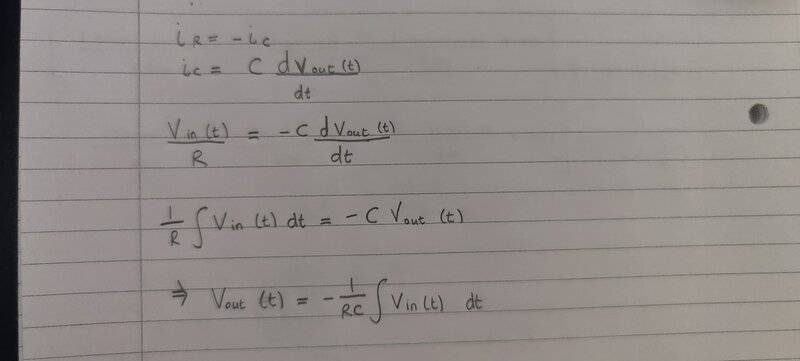 i_R = -i_C
i_C = C dV_out(t)/dt
V_in(t)/R = -C dV_out(t)/dt
1/R ∫ V_in(t) dt = -C V_out(t)
⇒ V_out(t) = -1/RC ∫ V_in(t) dt